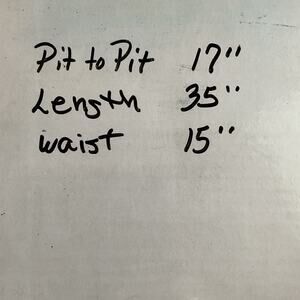 Pit to Pit 17"
Length 35"
waist 15"